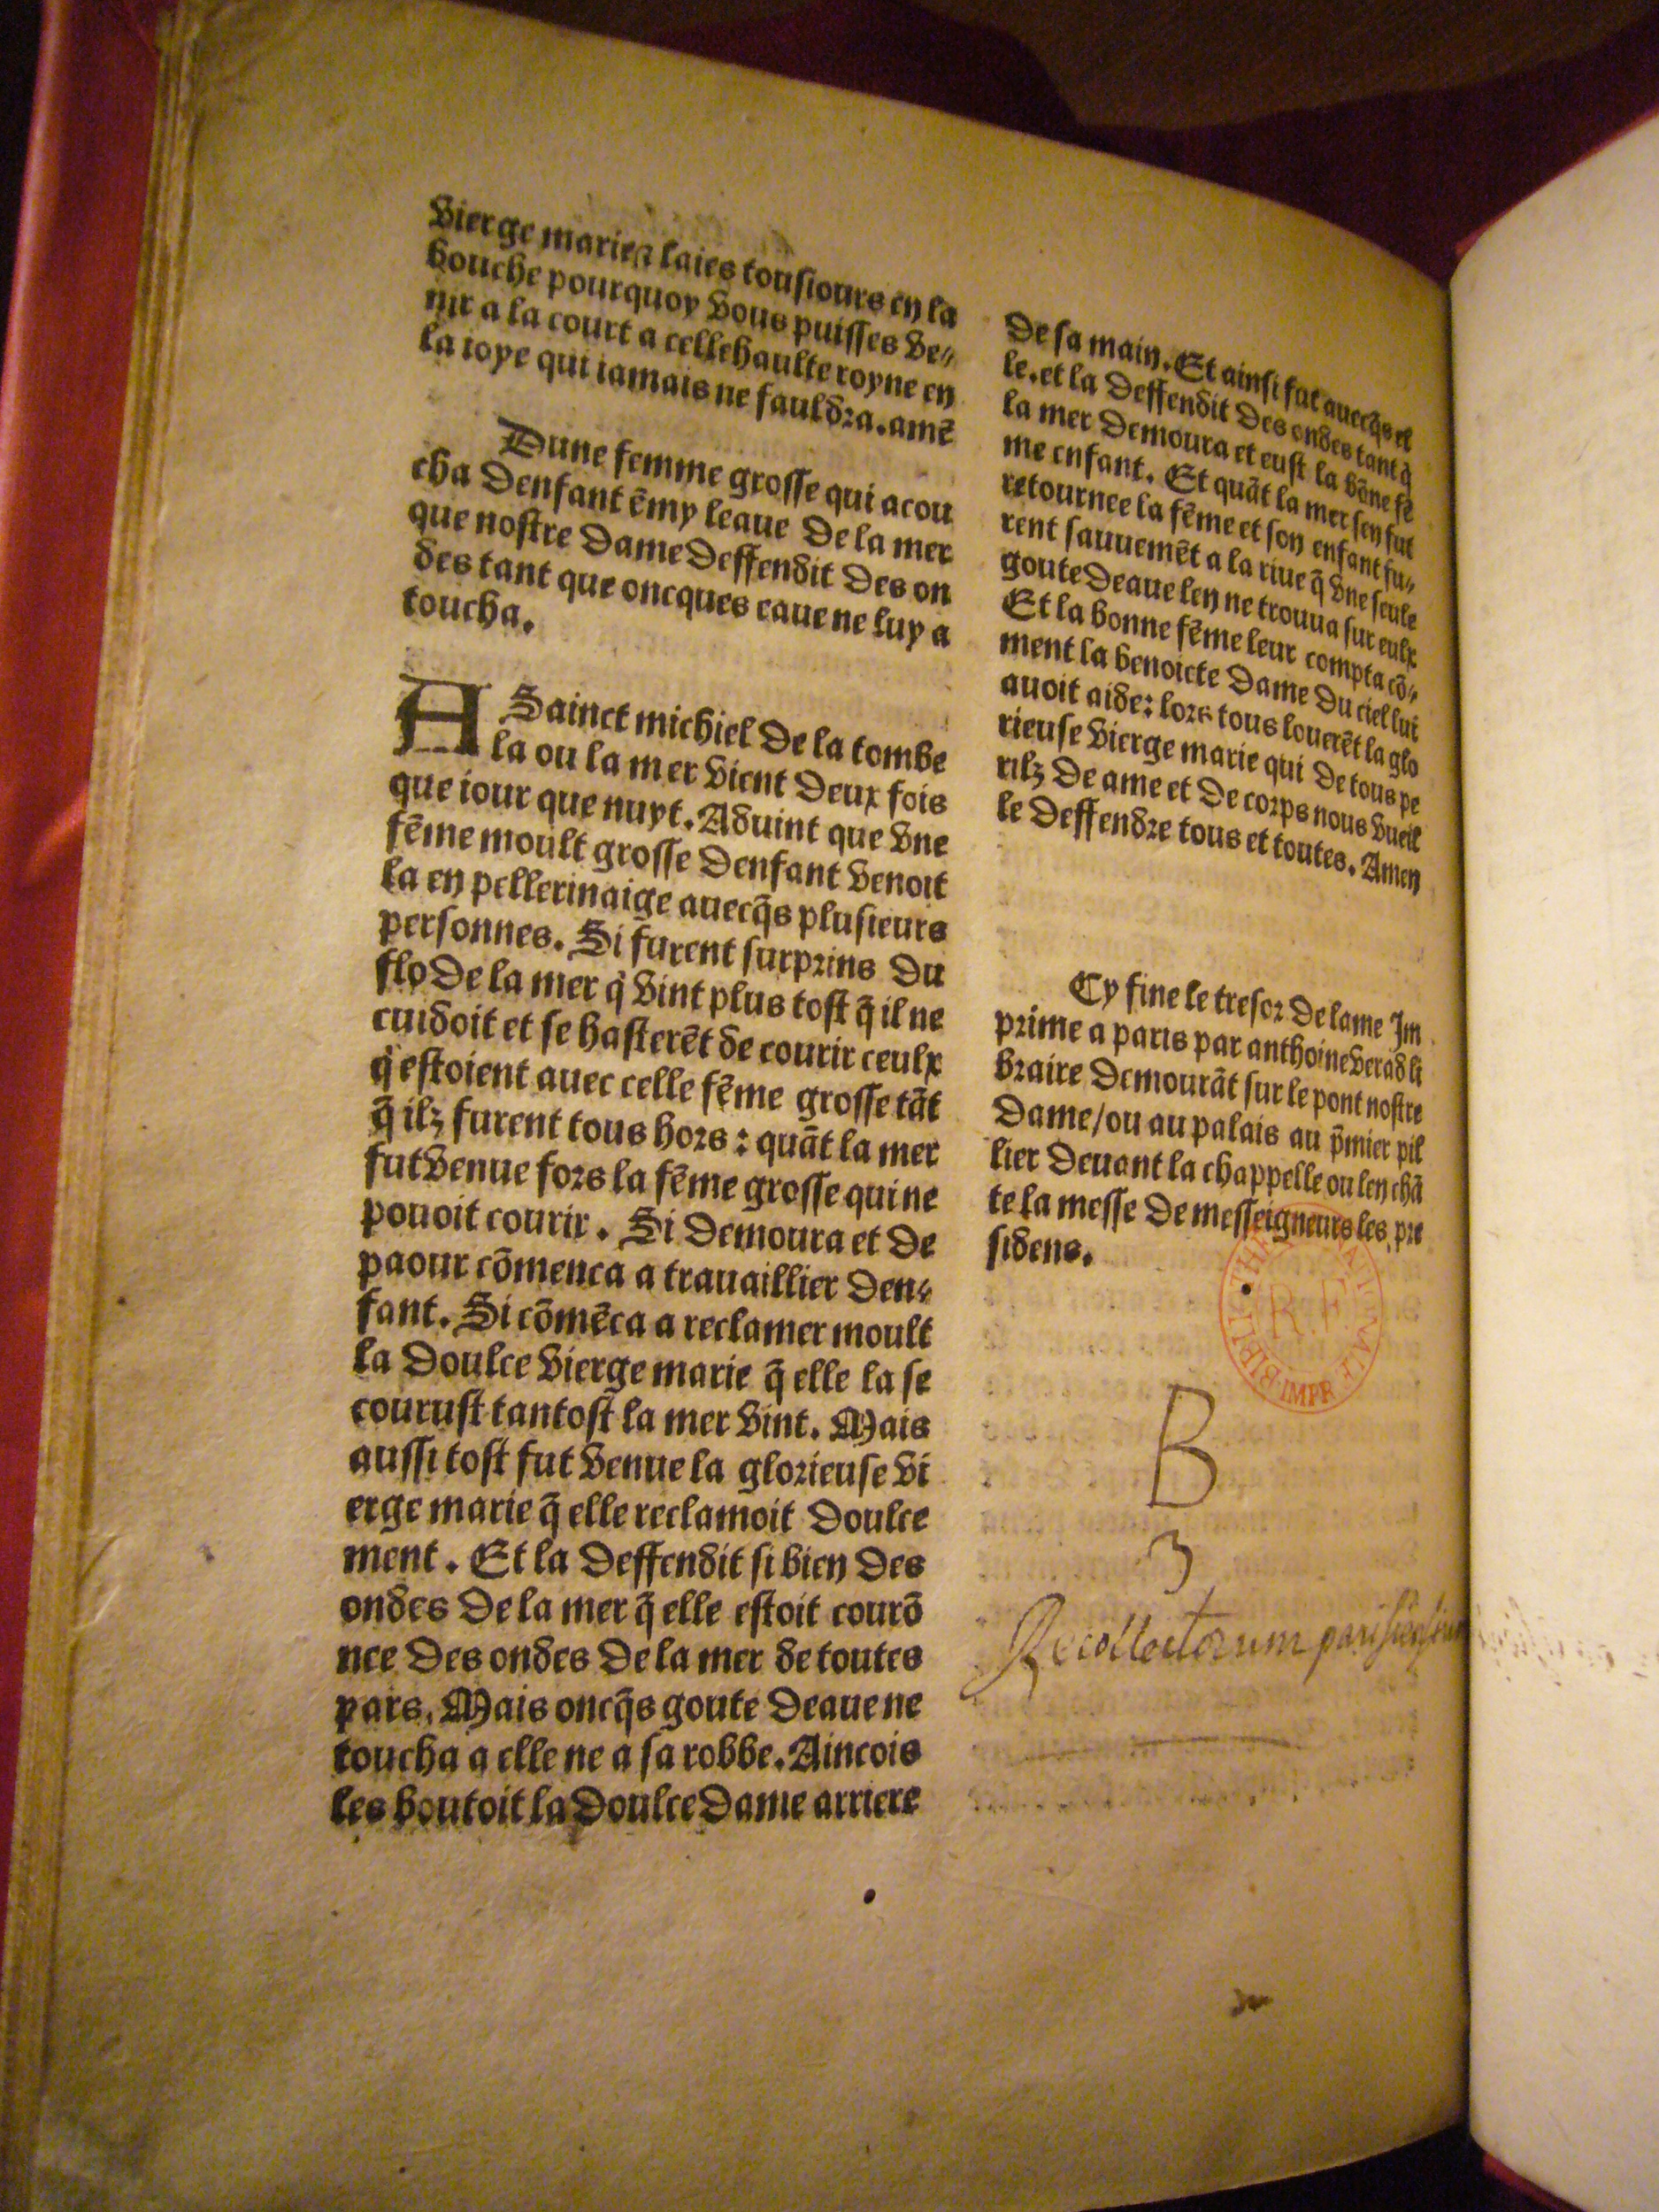 vierge marie ⁊ laies tousiours en la
bouche pourquoy vous puisses ve⸗
nir a la court a celle haulte royne en
la ioye qui iamais ne fauldra. amē
Dune femme grosse qui acou
cha denfant ēmy leaue de la mer
que nostre dame deffendit des on
des tant que oncques eaue ne luy a
toucha.
A Sainct michiel de la tombe
la ou la mer vient deux fois
que iour que nuyt. Aduint que vne
fēme moult grosse denfant venoit
la en pellerinaige auecq̄s plusieurs
personnes. Si furent surprins du
flo de la mer q̇ vint plus tost q̄ il ne
cuidoit et se hasterēt de courir ceulx
q̇ estoient auec celle fēme grosse tāt
q̄ ilz furent tous hors : quāt la mer
fut venue fors la fēme grosse qui ne
pouoit courir. Si demoura et de
paour cōmenca a trauaillier den⸗
fant. Si cōmēca a reclamer moult
la doulce vierge marie q̄ elle la se
courust tantost la mer vint. Mais
aussi tost fut venue la glorieuse vi
erge marie q̄ elle reclamoit doulce
ment. Et la deffendit si bien des
ondes de la mer q̄ elle estoit courō
nee des ondes de la mer de toutes
pars. Mais oncq̄s goute deaue ne
toucha a elle ne a sa robbe. Aincois
les boutoit la doulce dame arriere
de sa main. Et ainsi fut auecq̄s el
le. et la deffendit des ondes tant q̄
la mer demoura et eust la bōne fē
me enfant. Et quāt la mer sen fut
retournee la fēme et son enfant fu⸗
rent sauuemēt a la riue q̄ vne seule
goute deaue len ne trouua sur eulx
Et la bonne fēme leur compta cō⸗
ment la benoicte dame du ciel lui
auoit aide: lors tous louerēt la glo
rieuse vierge marie qui de tous pe
rilz de ame et de corps nous vueil
le deffendre tous et toutes. Amen
Cy fine le tresor de lame Im
prime a paris par anthoine verad li
braire demourāt sur le pont nostre
dame/ou au palais au p̄mier pil
lier deuant la chappelle ou len chā
te la messe de messeigneurs les pre
sidens.
BIBLIOTHEQUE NATIONALE
R.F.
IMPR
B
3
Recollectorum parisiensium